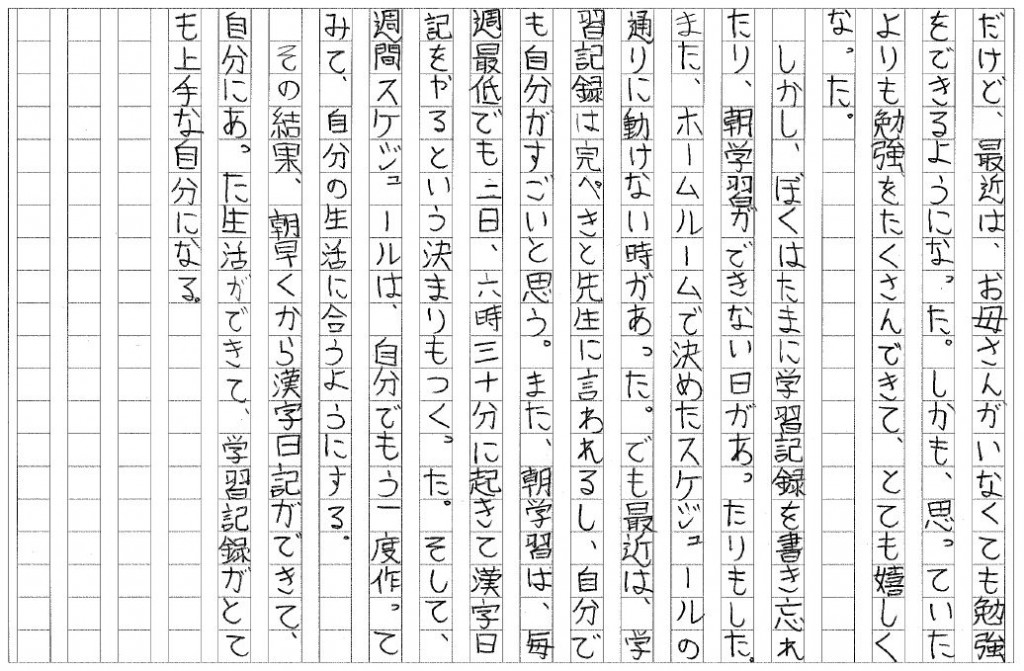 だけど、最近は、お母さんがいなくても勉強
をできるようになった。しかも、思っていた
よりも勉強をたくさんできて、とても嬉しく
なった。
しかし、ぼくはたまに学習記録を書き忘れ
たり、朝学習ができない日があったりもした。
また、ホームルームで決めたスケジュールの
通りに動けない時があった。でも最近は、学
習記録は完ぺきと先生に言われるし、自分で
も自分がすごいと思う。また、朝学習は、毎
週最低でも二日、六時三十分に起きて漢字日
記をやるという決まりもつくった。そして、
週間スケジュールは、自分でもう一度作って
みて、自分の生活に合うようにする。
その結果、朝早くから漢字日記ができて、
自分にあった生活ができて、学習記録がとて
も上手な自分になる。